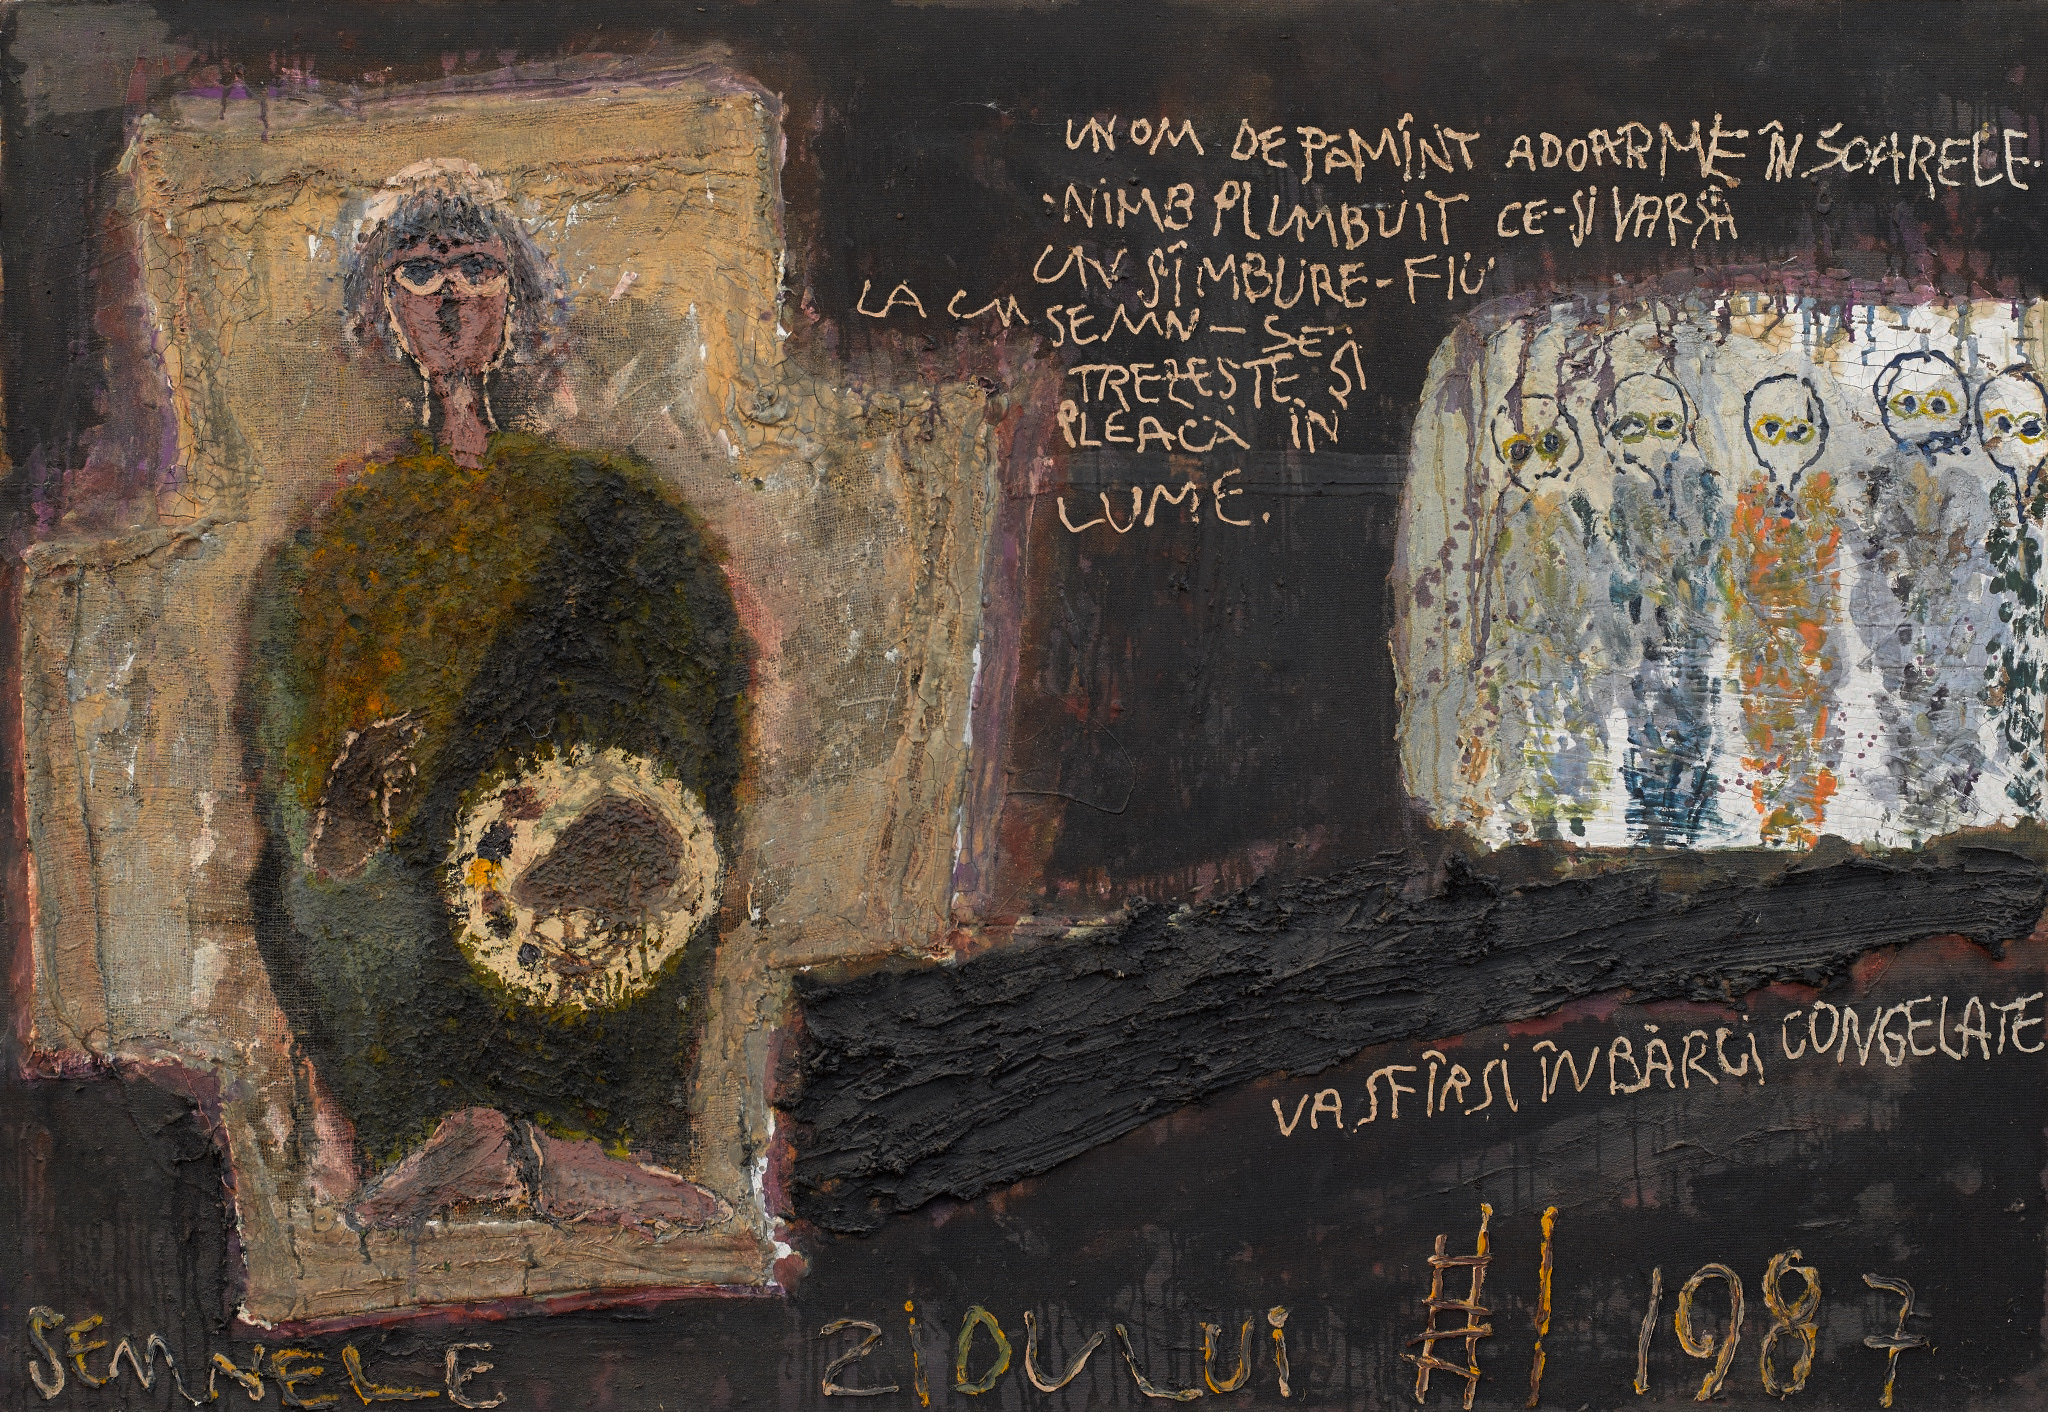 UN OM DE PAMÎNT ADOARME ÎN SOARELE.
·NIMB PLUMBUIT CE-ȘI VARSĂ
UN SÎMBURE-FIU
LA UN SEMN — SE
TREZEȘTE ȘI
PLEACĂ ÎN
LUME.
VA SFÎRȘI ÎN BĂRCI CONGELATE
SEMNELE ZIDULUI #1 1987